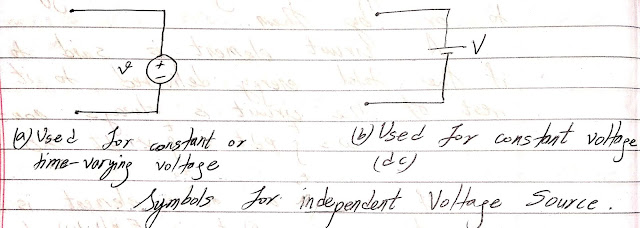 v + −
V
(a) Used for constant or
time-varying voltage
(b) Used for constant voltage
(dc)
Symbols for independent Voltage Source.